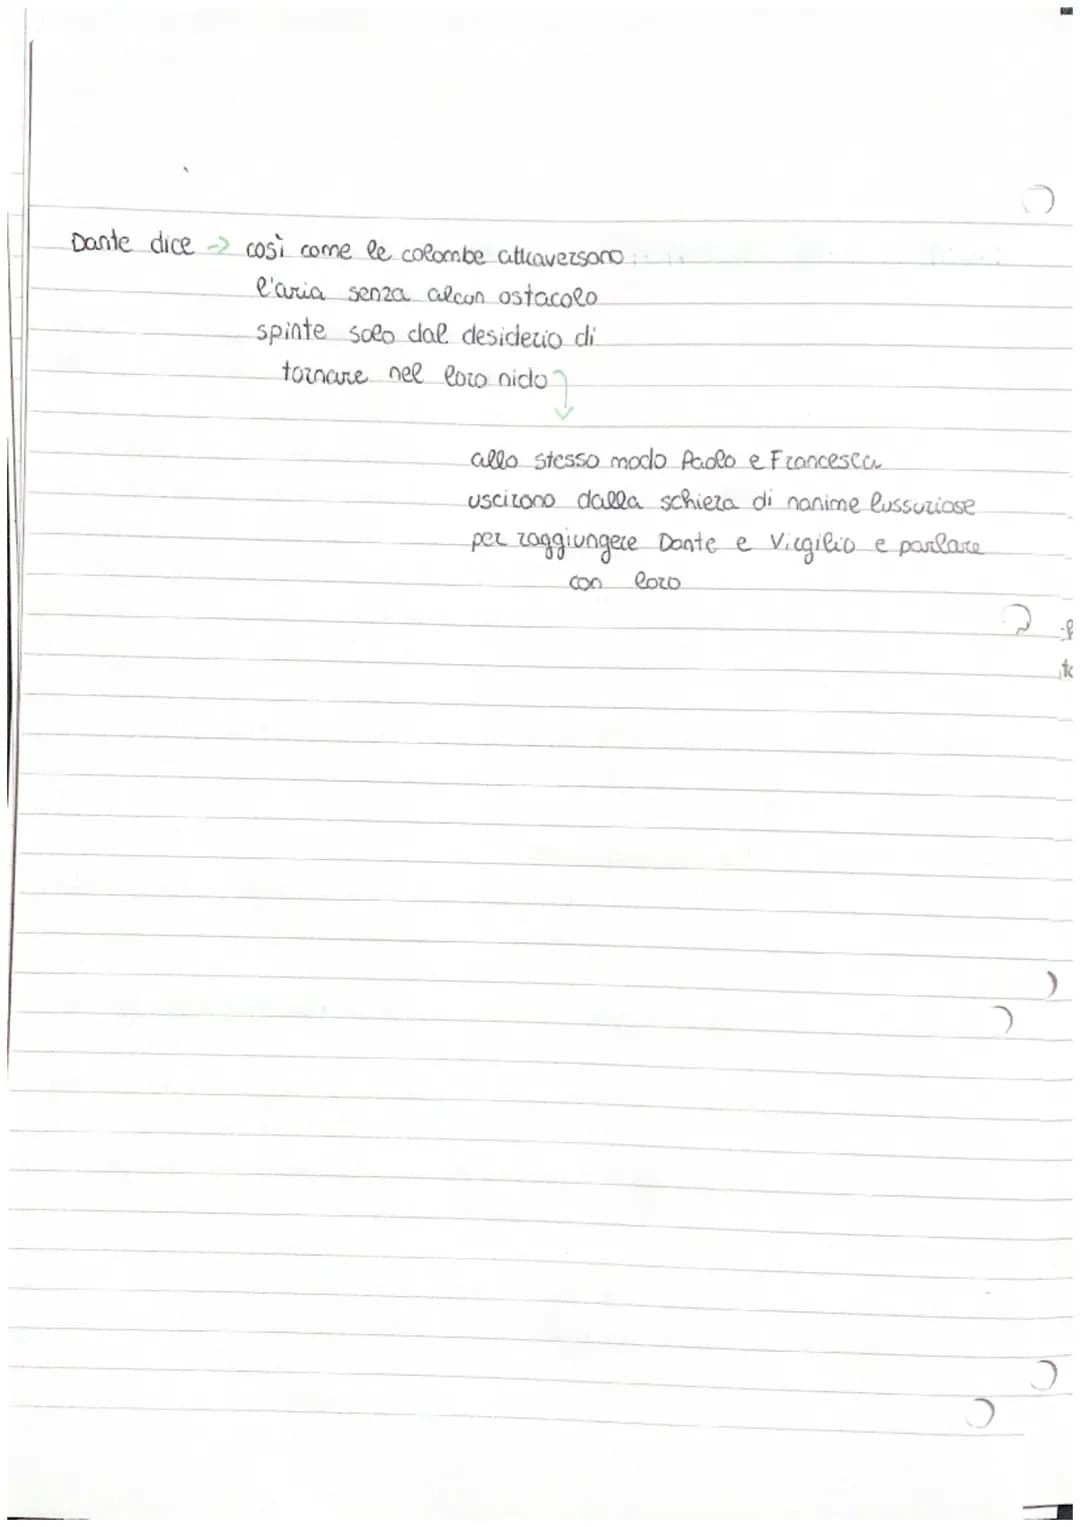 Dante dice -> così come le colombe attraversano
l'aria senza alcun ostacolo
spinte solo dal desiderio di
tornare nel loro nido
allo stesso modo Paolo e Francesca
uscirono dalla schiera di nanime lussuriose
per raggiungere Dante e Virgilio e parlare
con loro